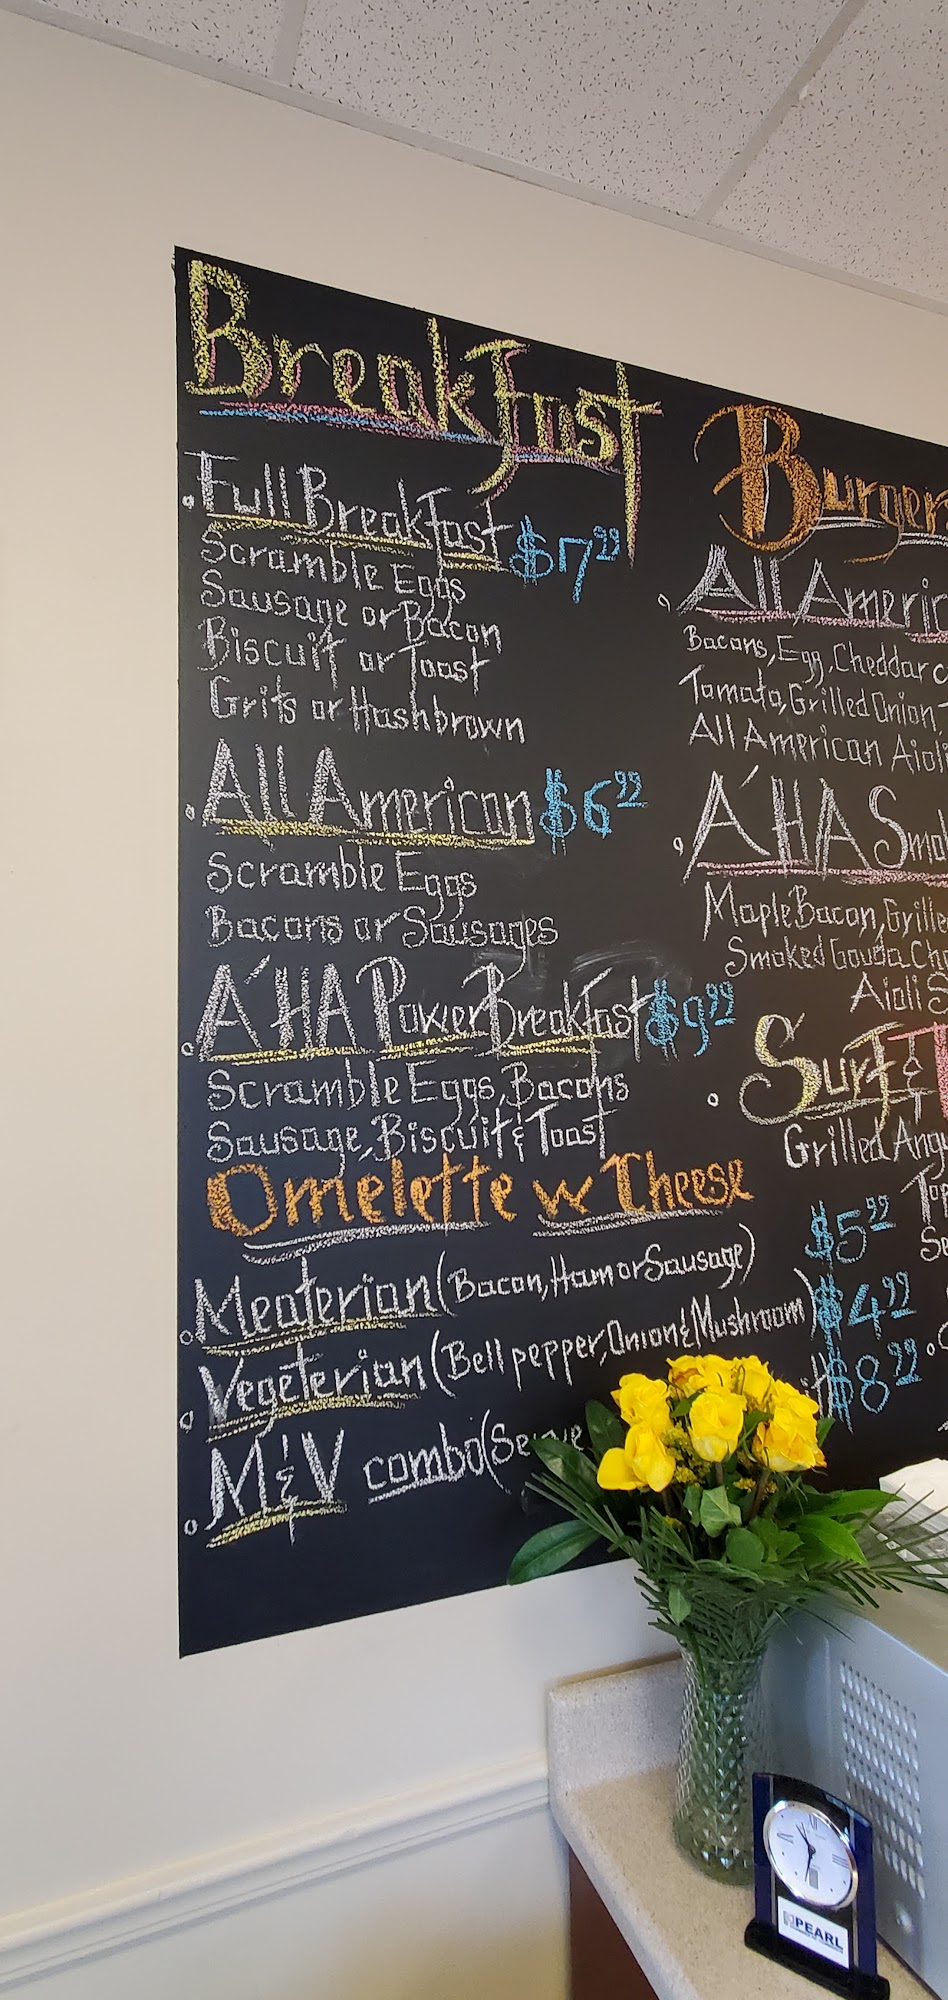 BreakFast
Full BreakFast $7.99
Scramble Eggs
Sausage or Bacon
Biscuit or Toast
Grits or Hashbrown
All American $6.99
Scramble Eggs
Bacons or Sausages
A'HA Power BreakFast $9.99
Scramble Eggs, Bacons
Sausage, Biscuit & Toast
Omelette w Cheese
Meaterian (Bacon, Ham or Sausage) $5.99
Vegeterian (Bell pepper, Onion & Mushroom) $4.99
M & V combo (Serve $8.99
Burger
All Americ
Bacons, Egg, Cheddar c
Tomato, Grilled Onion
All American Aioli
A'HA Smo
Maple Bacon, Grille
Smoked Gouda Che
Aioli S
Surf & T
Grilled Ang
To
Se
PEARL